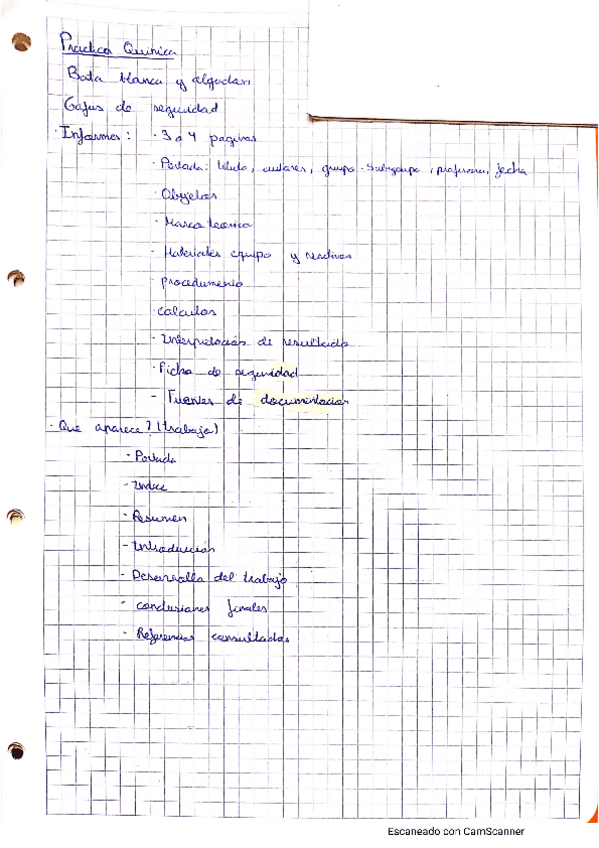 Practica Quimica
Bata blanca y algodon
Gafas de seguridad
· Informes: · 3 o 4 paginas
· Portada: titulo, autores, grupo - subgrupo, profesora, fecha
· Objetos
· Marco teorico
- Materiales equipo y reactivos
· procedimiento
· calculos
- Interpretación de resultado
· Ficha de seguridad
- Fuentes de documentacion
· Que aparece? (trabajo)
· Portada
- Indice
· Resumen
- Introducción
- Desarrollo del trabajo
- conclusiones finales
- Referencias consultadas
Escaneado con CamScanner